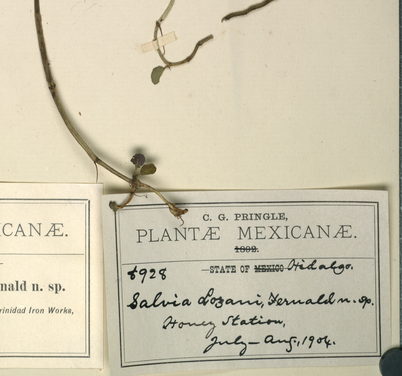 CANÆ.
nald n. sp.
rinidad Iron Works,
C. G. PRINGLE,
PLANTÆ MEXICANÆ.
1892.
8928 —STATE OF MEXICO Hidalgo.
Salvia Lozani, Fernald n. sp.
Honey Station,
July–Aug, 1904.